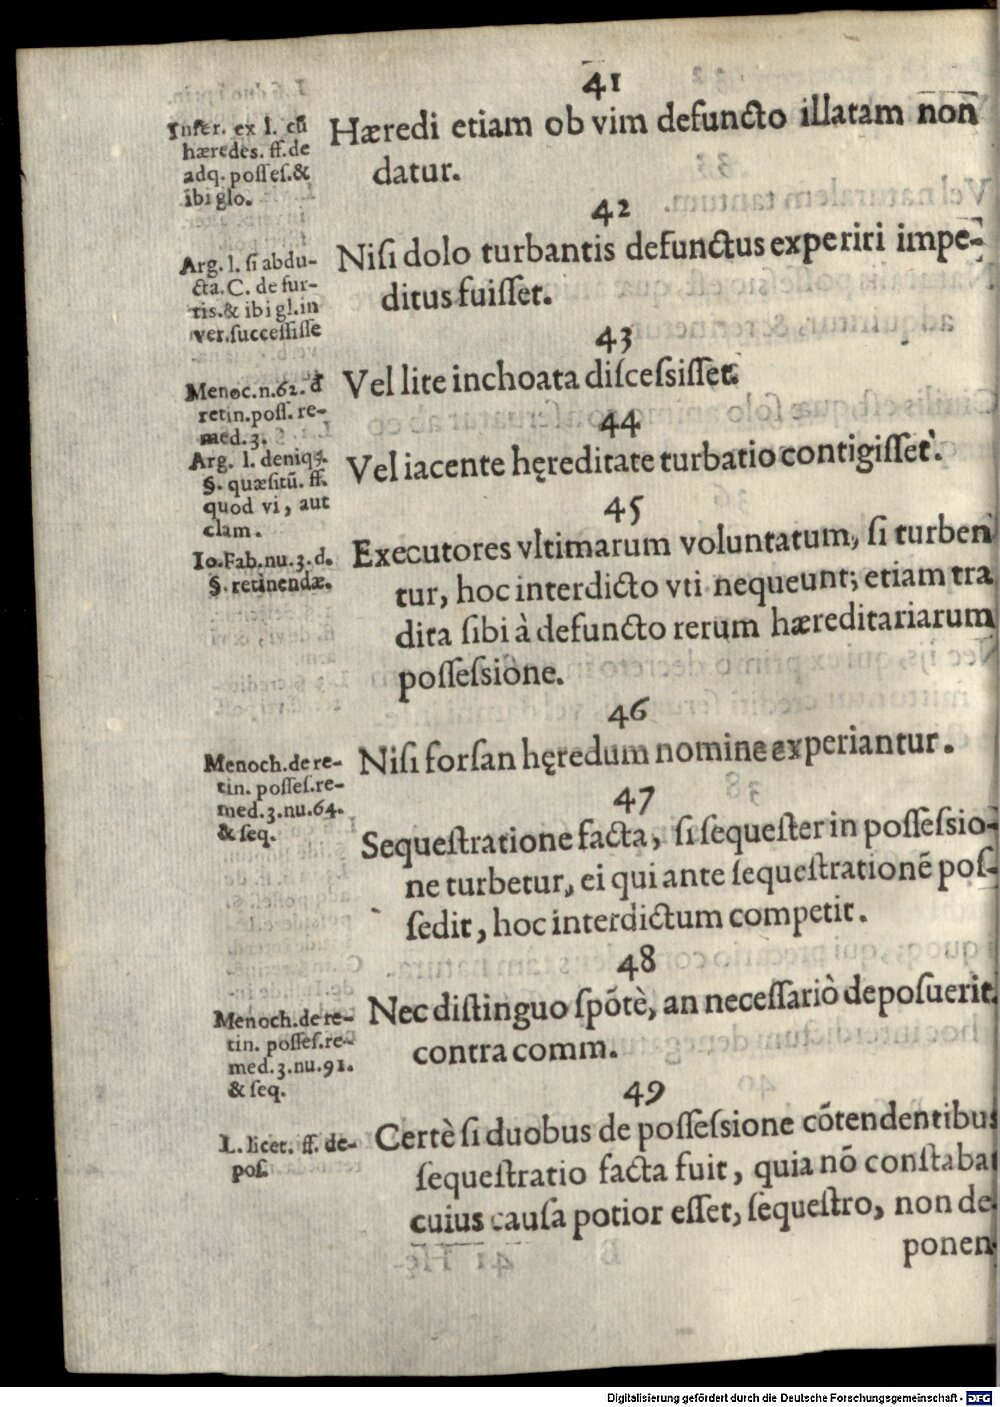 41
Infer. ex l. cū
hæredes. ff. de
adq. posſeſ. &
ibi glo.
Hæredi etiam ob vim defuncto illatam non
datur.
42
Arg. l. ſi abdu-
cta. C. de fur-
tis. & ibi gl. in
ver. ſucceſſiſſe
Niſi dolo turbantis defunctus experiri impe-
ditus fuiſſet.
43
Menoc. n. 62. d
retin. poſſ. re-
med. 3.
Vel lite inchoata diſceſsiſſet.
44
Arg. l. deniq;.
§. quæſitū. ff.
quod vi, aut
clam.
Vel iacente hęreditate turbatio contigiſſet.
45
Io. Fab. nu. 3. d.
§. retinendæ.
Executores vltimarum voluntatum, ſi turben
tur, hoc interdicto vti nequeunt; etiam tra
dita ſibi à defuncto rerum hæreditariarum
poſſeſsione.
46
Menoch. de re-
tin. poſſeſ. re-
med. 3. nu. 64.
& ſeq.
Niſi forſan hęredum nomine experiantur.
47
Sequeſtratione facta, ſi ſequeſter in poſſeſsio-
ne turbetur, ei qui ante ſequeſtrationē poſ-
ſedit, hoc interdictum competit.
48
Menoch. de re-
tin. poſſeſ. re-
med. 3. nu. 91.
& ſeq.
Nec diſtinguo ſpōtè, an neceſſariò depoſuerit.
contra comm.
49
L. licet. ff. de-
poſ.
Certè ſi duobus de poſſeſsione cōtendentibus
ſequeſtratio facta fuit, quia nō conſtabat
cuius cauſa potior eſſet, ſequeſtro, non de-
ponen-
Digitalisierung gefördert durch die Deutsche Forschungsgemeinschaft - DFG